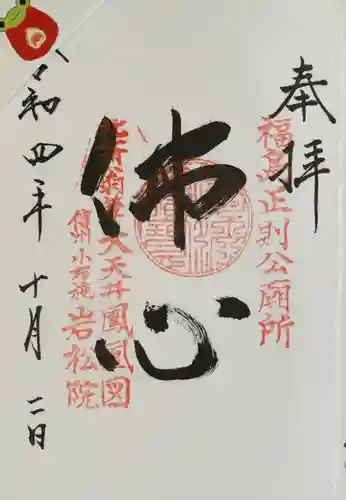 奉拝
福島正則公廟所
佛心
北斎翁筆大天井鳳凰図
信州小布施岩松院
令和四年十月二日